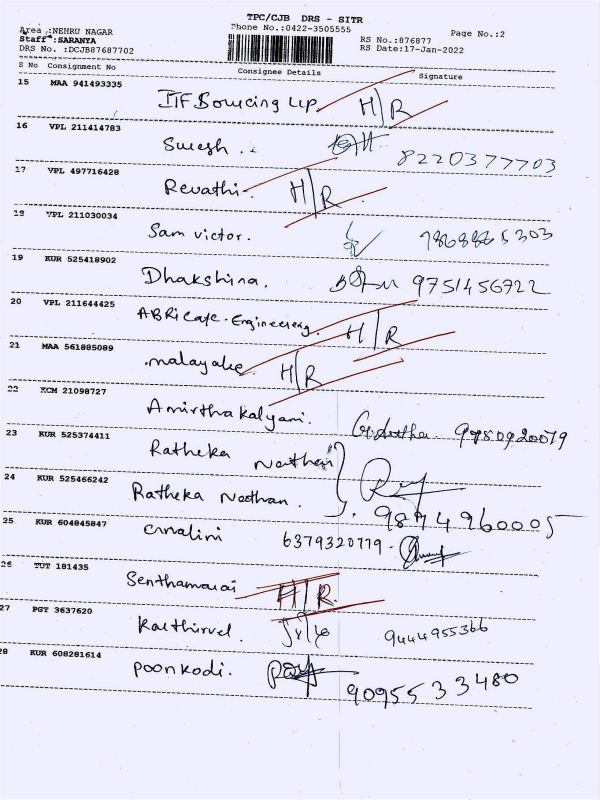 TPC/CJB DRS - SITR
Area :NEHRU NAGAR Phone No.:0422-3505555 Page No.:2
Staff :SARANYA RS No.:876877
DRS No. :DCJB87687702 RS Date:17-Jan-2022
S No Consignment No Consignee Details Signature
15 MAA 941493335
H/R
16 VPL 211414783
Suresh. 8220377703
17 VPL 497716428
Revathi. H/R
18 VPL 211030034
Sam victor.
19 KUR 525418902
Dhakshina. 9751456722
20 VPL 211644425
Engineering. H/R
21 MAA 561885089
H/R
22 KCM 21098727
Amirtha kalyani. 9980920079
23 KUR 525374411
Ratheka Nathan
24 KUR 525466242
Ratheka Nathan.
25 KUR 604845847
6379320779
26 TUT 181435
Senthamarai H/R.
27 PGT 3637620
9444955366
28 KUR 608281614
Poonkodi. 9095533480